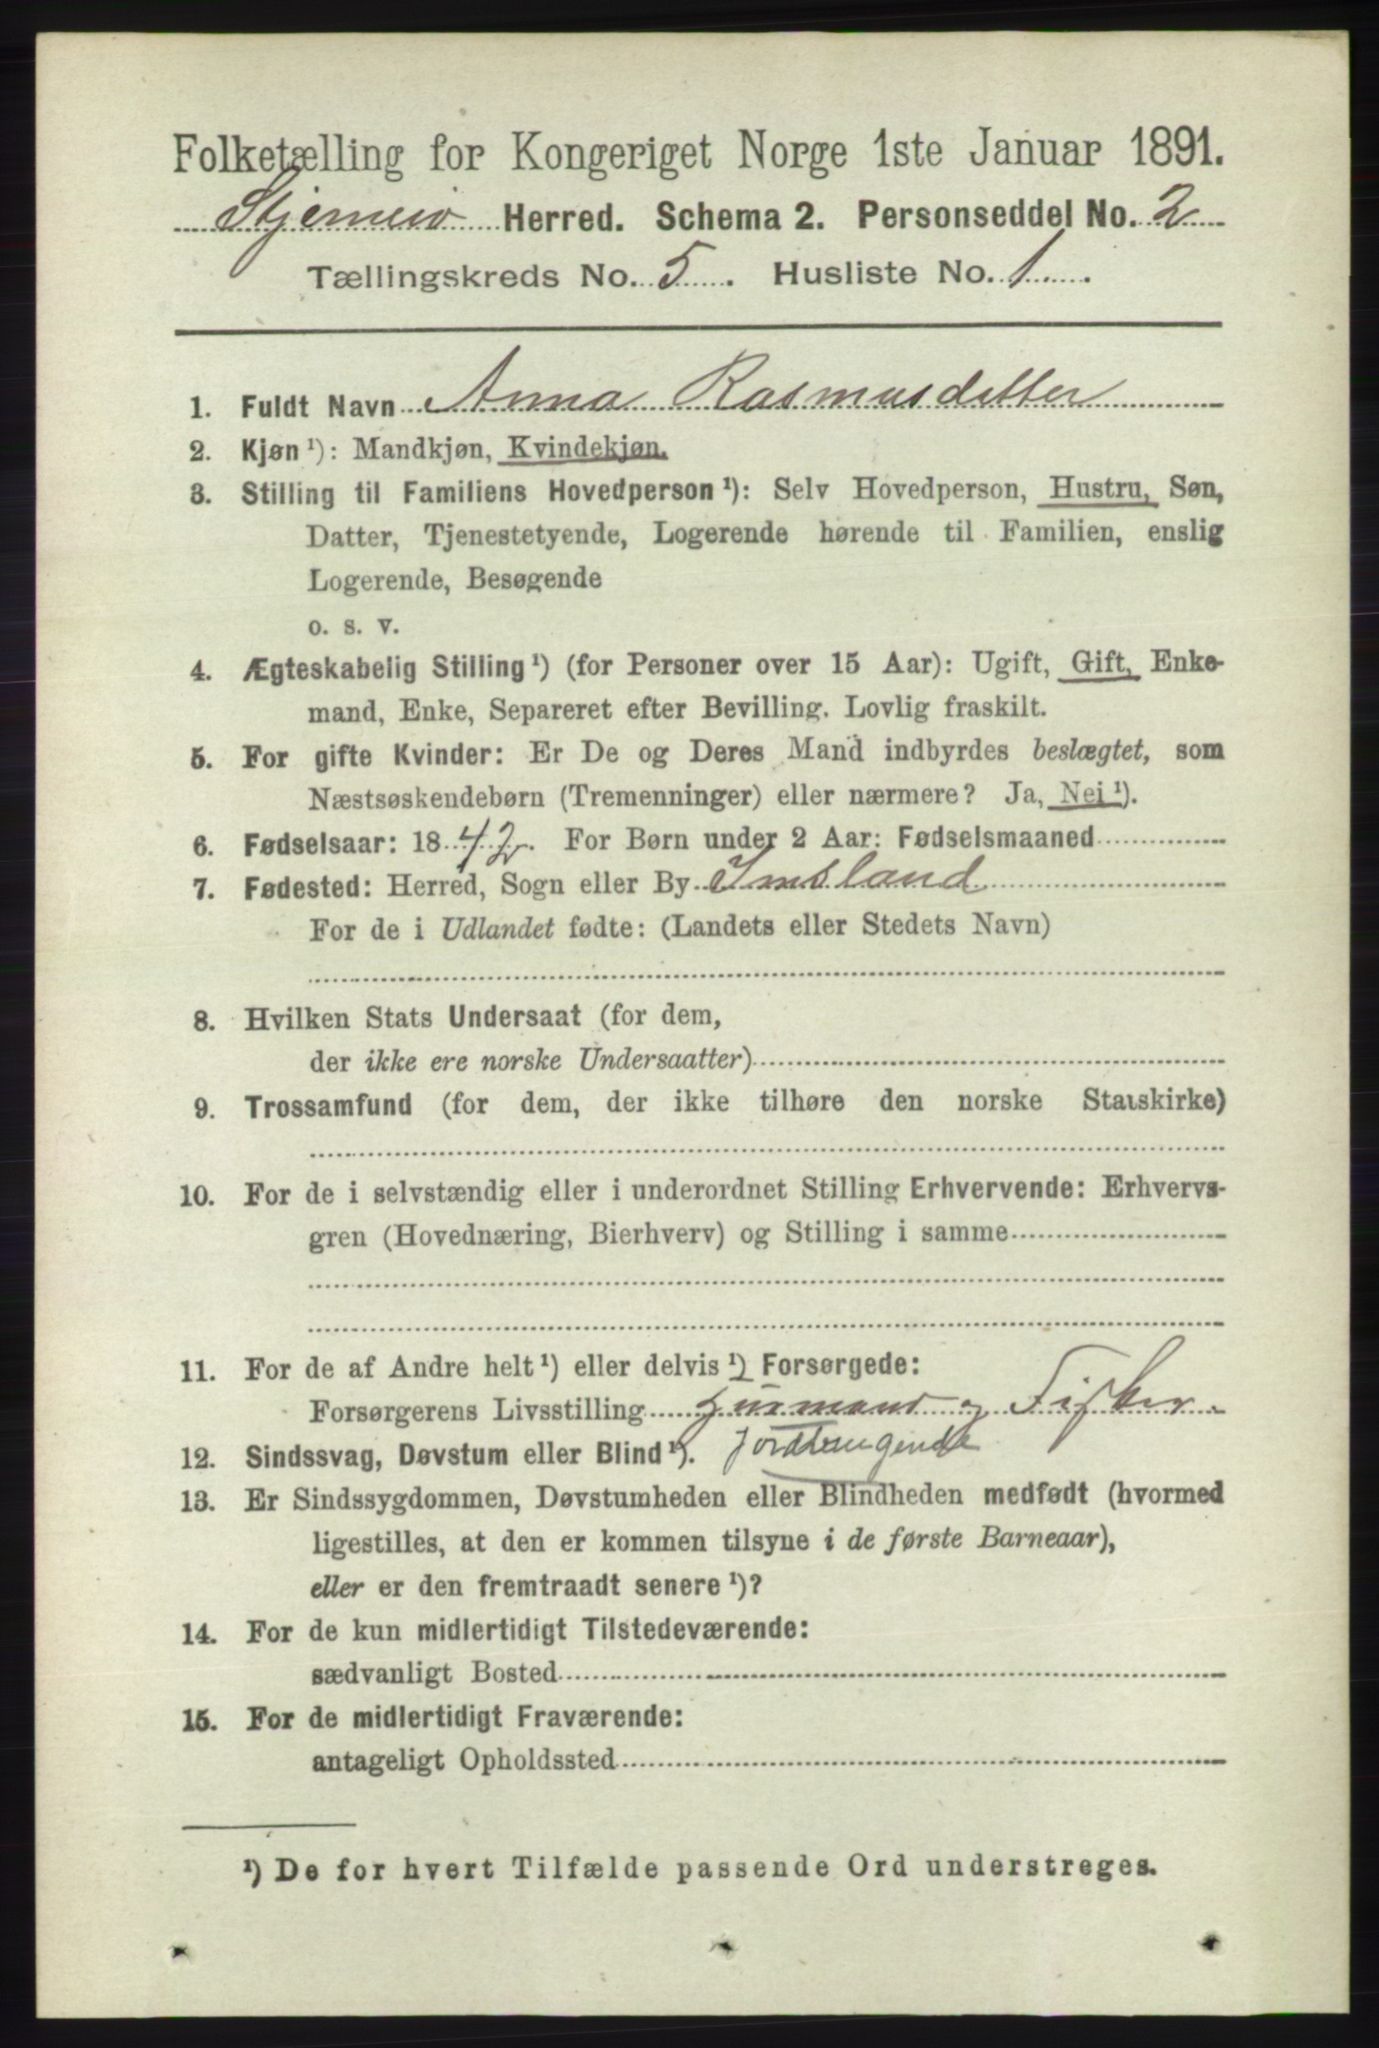 Folketælling for Kongeriget Norge 1ste Januar 1891.
Stjernerø Herred. Schema 2. Personseddel No. 2
Tællingskreds No. 5. Husliste No. 1.
1. Fuldt Navn Anna Rasmusdatter
2. Kjøn ¹): Mandkjøn, Kvindekjøn.
3. Stilling til Familiens Hovedperson ¹): Selv Hovedperson, Hustru, Søn,
Datter, Tjenestetyende, Logerende hørende til Familien, enslig
Logerende, Besøgende
o. s. v.
4. Ægteskabelig Stilling ¹) (for Personer over 15 Aar): Ugift, Gift, Enke-
mand, Enke, Separeret efter Bevilling. Lovlig fraskilt.
5. For gifte Kvinder: Er De og Deres Mand indbyrdes beslægtet, som
Næstsøskendebørn (Tremenninger) eller nærmere? Ja, Nei ¹).
6. Fødselsaar: 1842. For Børn under 2 Aar: Fødselsmaaned
7. Fødested: Herred, Sogn eller By Imsland
For de i Udlandet fødte: (Landets eller Stedets Navn)
8. Hvilken Stats Undersaat (for dem,
der ikke ere norske Undersaatter)
9. Trossamfund (for dem, der ikke tilhøre den norske Statskirke)
10. For de i selvstændig eller i underordnet Stilling Erhvervende: Erhvervs-
gren (Hovednæring, Bierhverv) og Stilling i samme
11. For de af Andre helt ¹) eller delvis ¹) Forsørgede:
Forsørgerens Livsstilling Husmand og Fisker.
12. Sindssvag, Døvstum eller Blind ¹).
13. Er Sindssygdommen, Døvstumheden eller Blindheden medfødt (hvormed
ligestilles, at den er kommen tilsyne i de første Barneaar),
eller er den fremtraadt senere ¹)?
14. For de kun midlertidigt Tilstedeværende:
sædvanligt Bosted
15. For de midlertidigt Fraværende:
antageligt Opholdssted
¹) De for hvert Tilfælde passende Ord understreges.